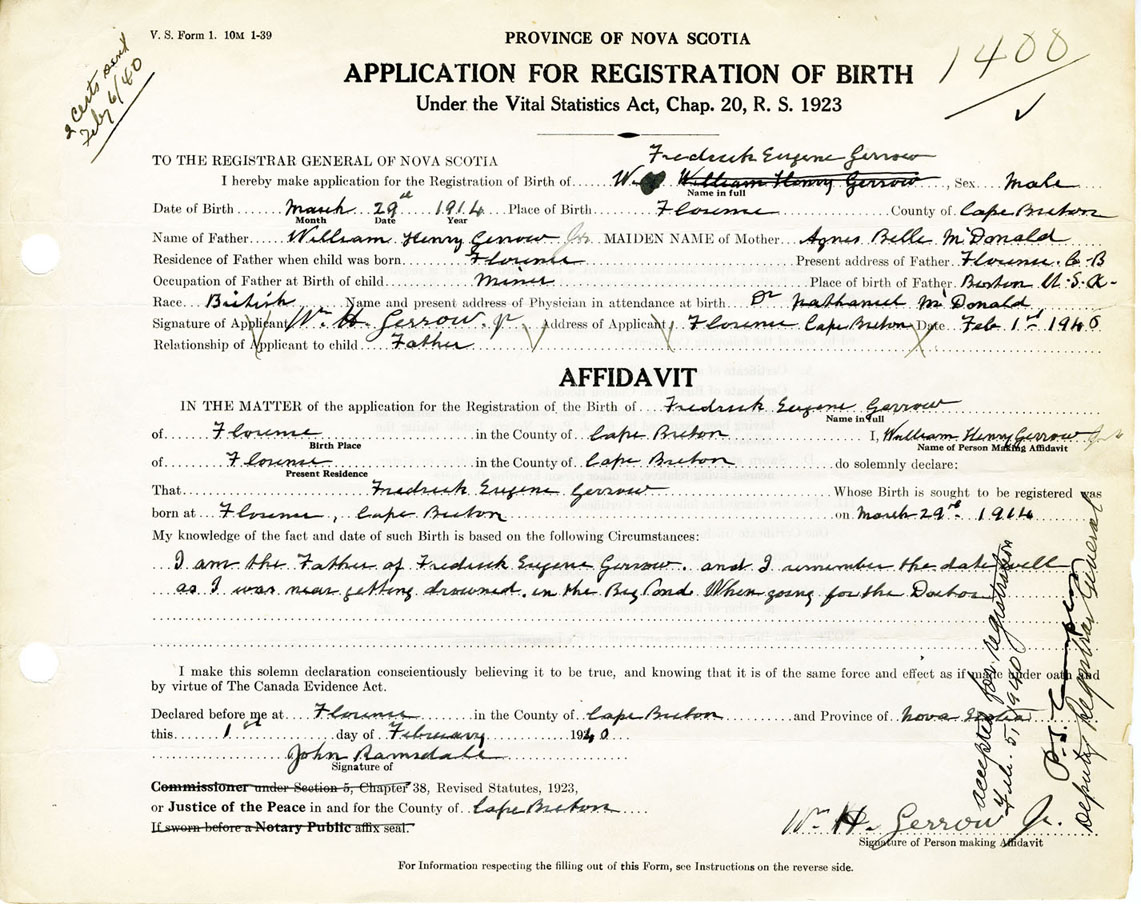 V. S. Form 1. 10M 1-39
2 Certs sent
Feby 6/40
PROVINCE OF NOVA SCOTIA
1400
APPLICATION FOR REGISTRATION OF BIRTH
Under the Vital Statistics Act, Chap. 20, R. S. 1923
Fredrick Eugene Gerrow
TO THE REGISTRAR GENERAL OF NOVA SCOTIA
I hereby make application for the Registration of Birth of W William Henry Gerrow, Sex Male
Name in full
Date of Birth March 29th 1914 Place of Birth Florence County of Cape Breton
Month Date Year
Name of Father William Henry Gerrow Jr. MAIDEN NAME of Mother Agnes Belle McDonald
Residence of Father when child was born Florence Present address of Father Florence. C.B
Occupation of Father at Birth of child Miner Place of birth of Father Boston U.S.A.
Race British Name and present address of Physician in attendance at birth Dr Nathaniel McDonald
Signature of Applicant Wm. H. Gerrow. Jr Address of Applicant Florence Cape Breton Date Feb 1st 1940
Relationship of Applicant to child Father
AFFIDAVIT
IN THE MATTER of the application for the Registration of the Birth of Fredrick Eugene Gerrow
Name in full
of Florence in the County of Cape Breton I, William Henry Gerrow Jr
Birth Place Name of Person Making Affidavit
of Florence in the County of Cape Breton do solemnly declare:
Present Residence
That Fredrick Eugene Gerrow Whose Birth is sought to be registered was
born at Florence, Cape Breton on March 29th 1914
My knowledge of the fact and date of such Birth is based on the following Circumstances:
I am the Father of Fredrick Eugene Gerrow. and I remember the date well
as I was near getting drowned. in the Big Pond When going for the Doctor
I make this solemn declaration conscientiously believing it to be true, and knowing that it is of the same force and effect as if made under oath and
by virtue of The Canada Evidence Act.
Declared before me at Florence in the County of Cape Breton and Province of Nova Scotia
this 1st day of February 1940
John Ramsdale
Signature of
Commissioner under Section 5, Chapter 38, Revised Statutes, 1923,
or Justice of the Peace in and for the County of Cape Breton
If sworn before a Notary Public affix seal.
Wm H. Gerrow Jr.
Signature of Person making Affidavit
accepted for registration
Feb. 5, 1940
Deputy Registrar General
For Information respecting the filling out of this Form, see Instructions on the reverse side.